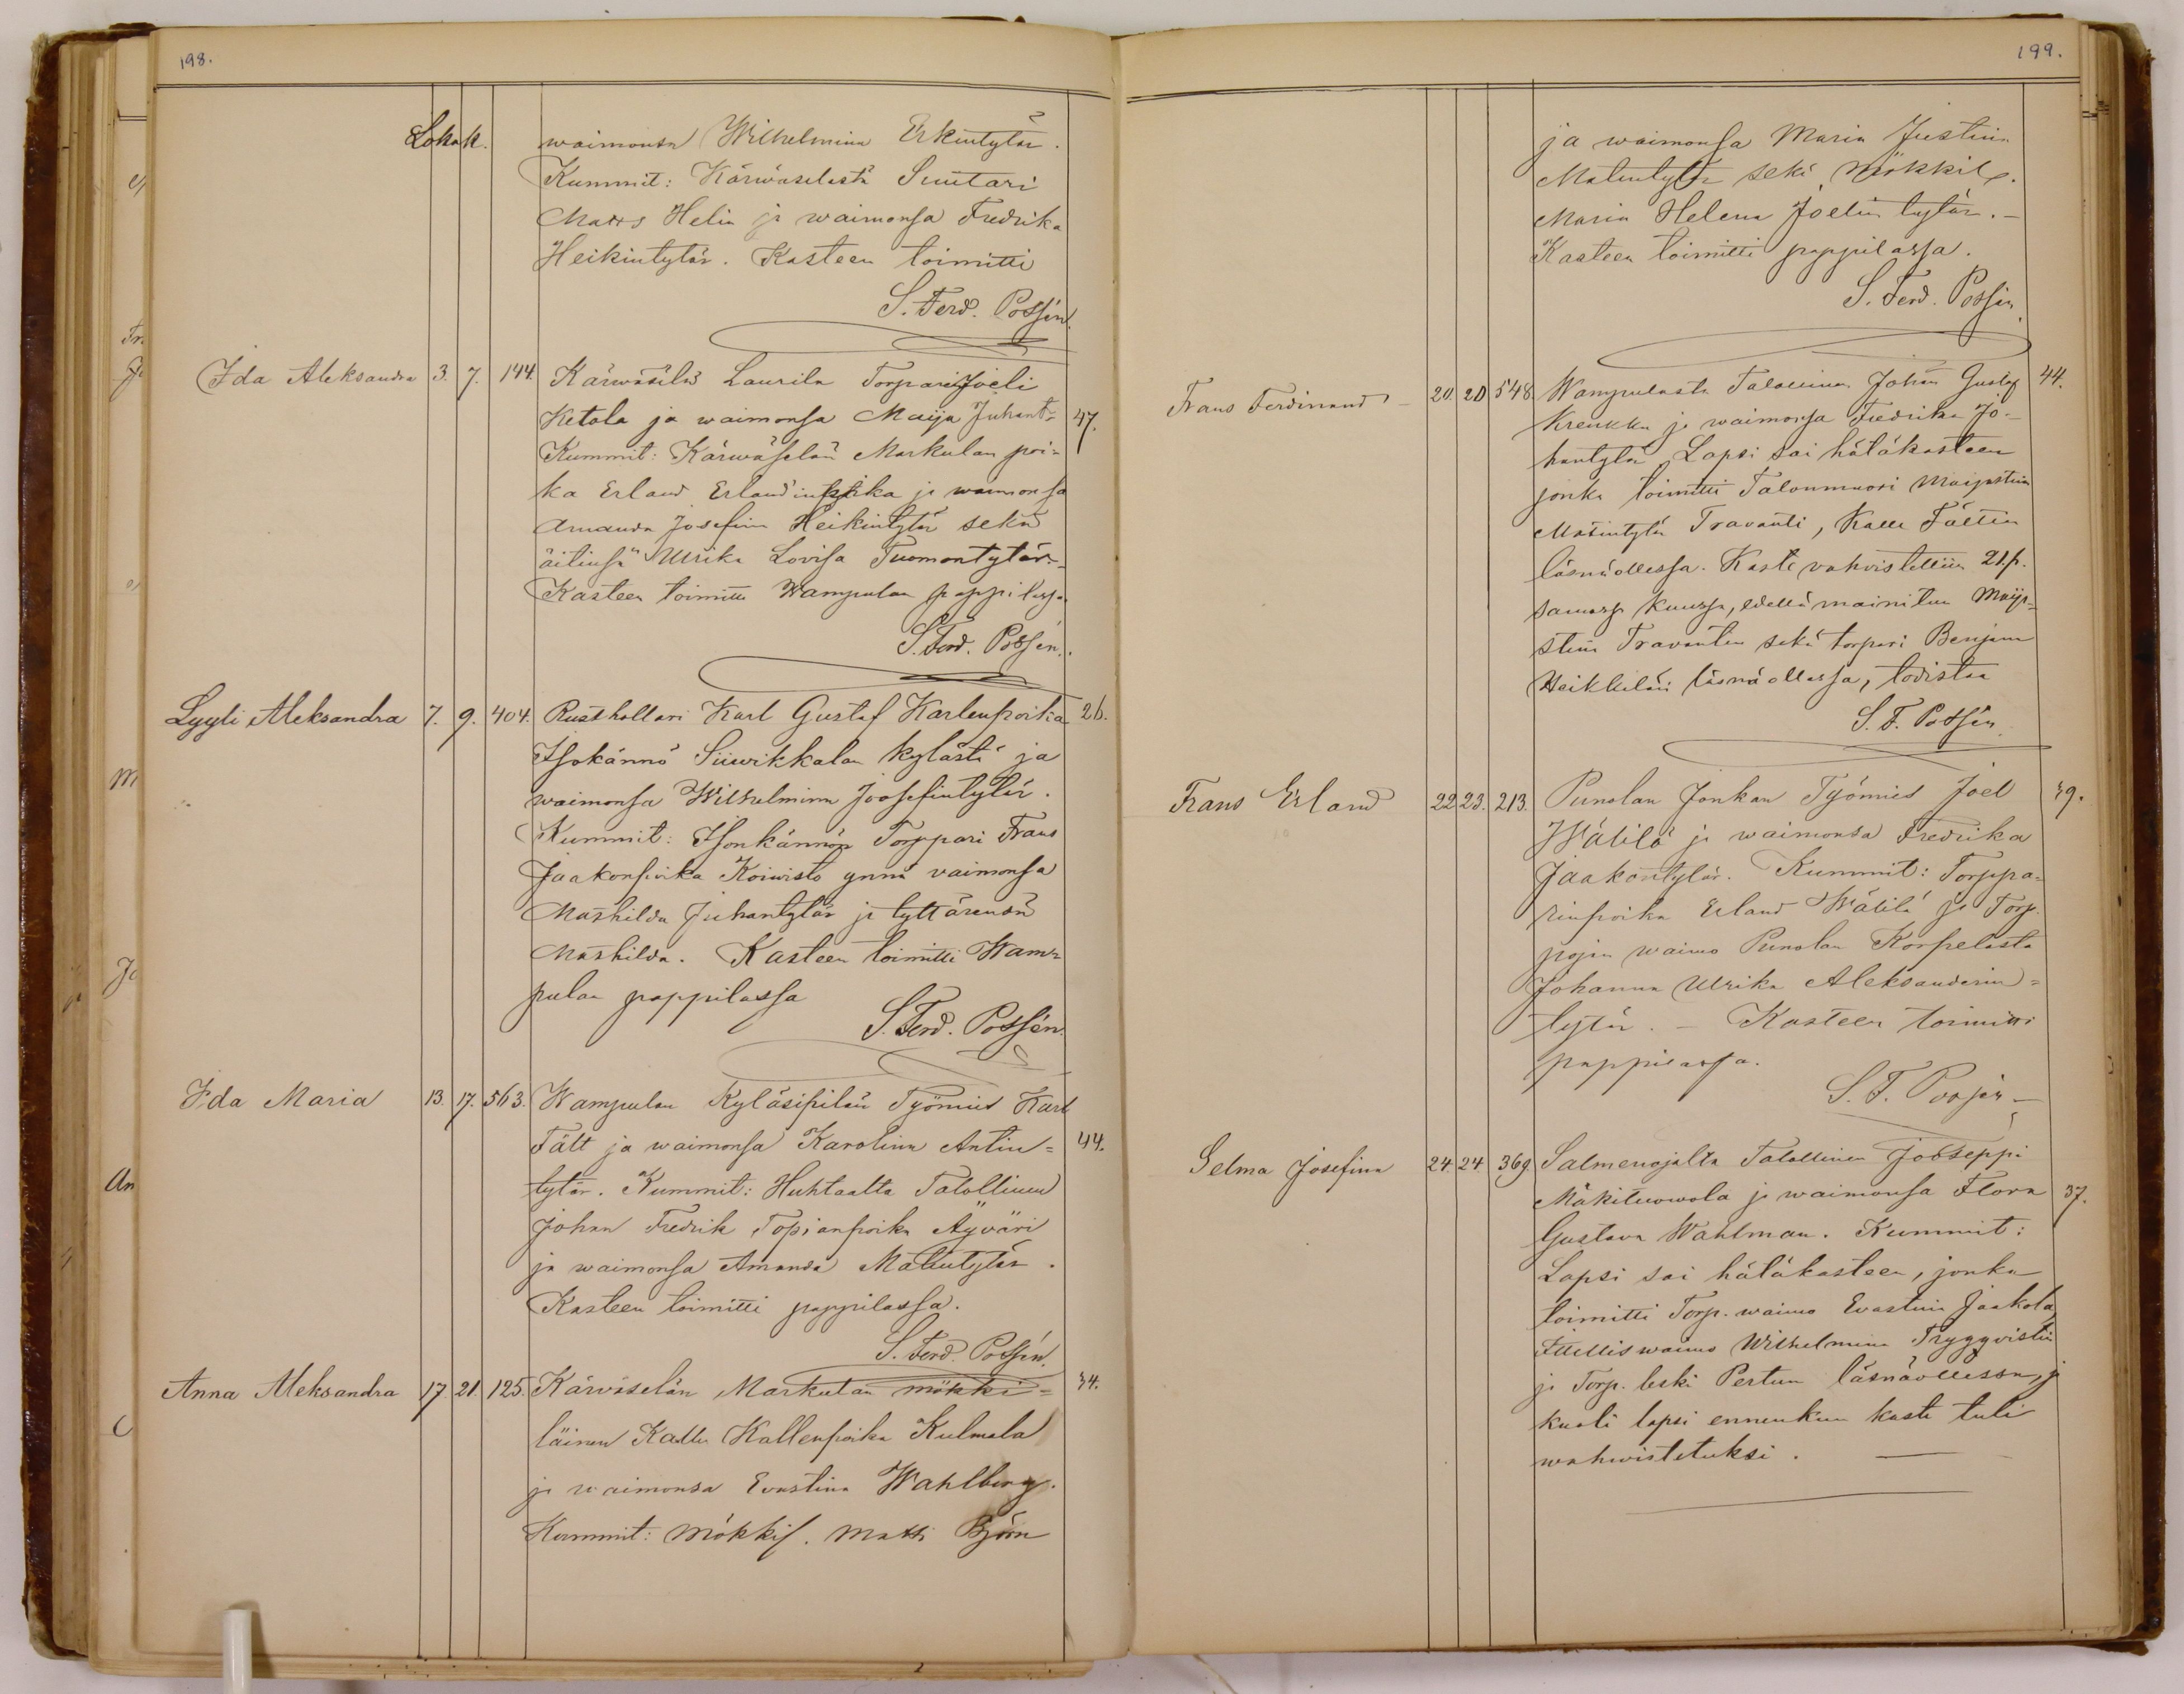 198.
Lokak.
waimonsa Wilhelmina Erkintytär.
Kummit: Kärwäselästä Suutari
Matts Helin ja waimonsa Fredrika
Heikintytär. Kasteen toimitti
S. Ferd. Possén.
Ida Aleksandra 3. 7. 144. Kärwäselä Laurila Torpari Joeli
Ketola ja waimonsa Maija Juhant= 47.
Kummit: Kärwäselän Markulan poi=
ka Erland Erlandinpoika ja waimonsa
Amanda Josefina Heikintytär sekä
äitinsä Ulrika Lovisa Tuomontytär.
Kasteen toimitti Wampulan pappilassa
S. Ferd. Possén.
Lyyli Aleksandra 7. 9. 404. Rusthollari Karl Gustaf Karlenpoika 26.
Isokännö Siiwikkalan kylästä ja
waimonsa Wilhelmina Joosefintytär.
Kummit: Isonkännön Torppari Frans
Jaakonpoika Koiwisto ynnä vaimonsa
Mathilda Juhantytär ja tyttärensä
Mathilda. Kasteen toimitti Wam=
pulan pappilassa
S. Ferd. Possén.
Ida Maria 13. 17. 563. Wampulan Kyläsipilän Työmies Karl
Fält ja waimonsa Karolina Antin= 44.
tytär. Kummit: Huhtaalta Talollinen
Johan Fredrik Topianpoika Äyväri
ja waimonsa Amanda Matintytär.
Kasteen toimitti pappilassa.
S. Ferd. Possén.
Anna Aleksandra 17. 21. 125. Kärväselän Markulan mökki= 34.
läinen Kalle Kallenpoika Kulmala
ja waimonsa Evastina Wahlberg.
Kummit: Mökkil. Matti Björn
199.
ja waimonsa Maria Justiina
Matintytär sekä Mökkil.
Maria Helena Joelin tytär.—
Kasteen toimitti pappilassa.
S. Ferd. Possén.
Frans Ferdinand 20. 20 548. Wampulasta Talollinen Johan Gustaf 44.
Kreukku ja waimonsa Fredrika Jo-
hantytär. Lapsi sai hätäkasteen
jonka toimitti Talonmuori Maijastiina
Matintytär Travanti, Kalle Fältin
läsnäollessa. Kaste vahvistettiin 21.p.
samassa kuussa, edellä mainitun Maija=
stiina Travantin sekä torpari Benjam
Heikkilän läsnäollessa, todistaa
S. F. Possén.
Frans Erland 22 23. 213. Punolan Jonkan Työmies Joel 39.
Wälilä ja waimonsa Fredrika
Jaakontytär. Kummit: Torppa=
rinpoika Erland Wälilä ja Torp.
pojan waimo Punolan Korpelasta
Johanna Ulrika Aleksanderin=
tytär. — Kasteen toimitti
pappilassa.
S. F. Possén
Selma Josefina 24. 24 369 Salmenojalta Talollinen Jooseppi
Mäkituowola ja waimonsa Flora 37.
Gustava Wahlman. Kummit:
Lapsi sai hätäkasteen, jonka
toimitti Torp. waimo Evastiina Jaakola,
Itellis waimo Wilhelmina Tryggvistin
ja Torp. leski Pertun läsnäollessa, ja
kuoli lapsi ennenkun kaste tuli
wahwistetuksi.